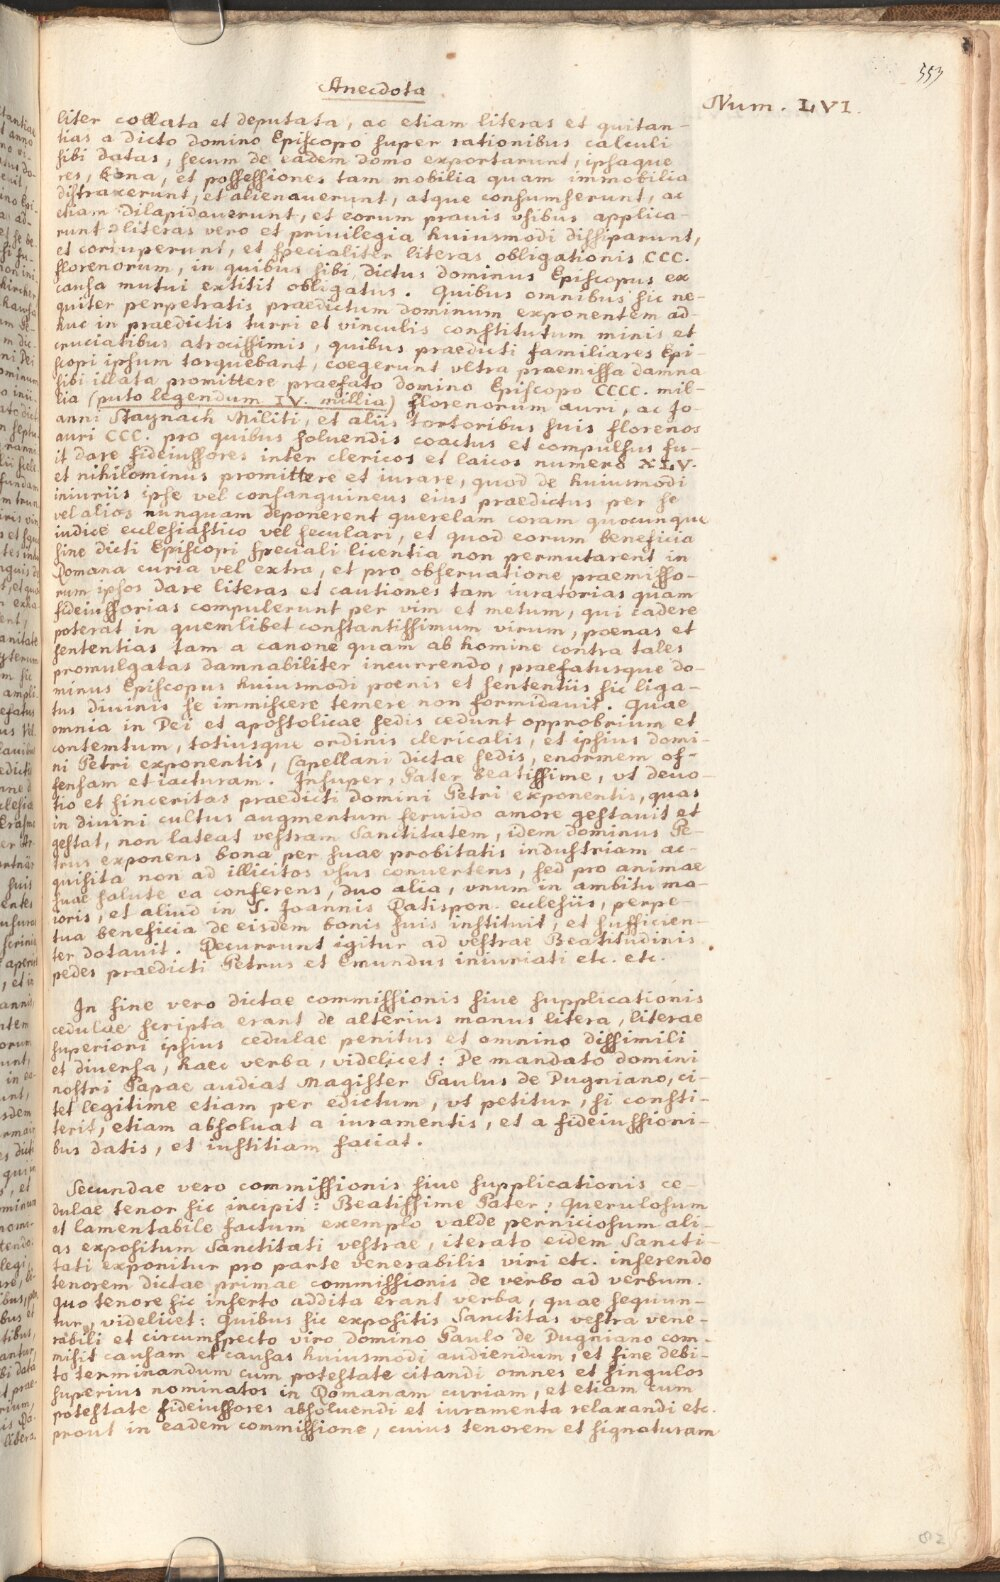 553
Anecdota
Num. LVI.
liter collata et deputata, ac etiam literas et quitan-
tias a dicto domino Episcopo super rationibus calculi
sibi datas, secum de eadem domo exportarunt, ipsaque
res, bona, et possessiones tam mobilia quam immobilia
distraxerunt, et alienauerunt, atque consumserunt, ac
etiam dilapidauerunt, et eorum prauis vsibus applica-
runt: literas vero et priuilegia huiusmodi dissiparunt,
et corruperunt, et specialiter literas obligationis CCC.
florenorum, in quibus sibi dictus dominus Episcopus ex
causa mutui extitit obligatus. Quibus omnibus sic ne-
quiter perpetratis praedictum dominum exponentem ad-
huc in praedictis turri et vinculis constitutum minis et
cruciatibus atrocissimis, quibus praedicti familiares Epi-
scopi ipsum torquebant, coegerunt vltra praemissa damna
sibi illata, promittere praefato domino Episcopo CCCC. mil-
lia (puto legendum IV. millia) florenorum auri, ac Jo-
anni Staynach Militi, et aliis tortoribus suis florenos
auri CCC. pro quibus soluendis coactus et compulsus fu-
it dare fideiussores inter clericos et laicos numero XLV.
et nihilominus promittere et iurare, quod de huiusmodi
iniuriis ipse vel consanguineus eius praedictus per se
vel alios nunquam deponerent querelam coram quocunque
iudice ecclesiastico vel seculari, et quod eorum beneficia
sine dicti Episcopi speciali licentia non permutarent in
Romana curia vel extra, et pro obseruatione praemisso-
rum ipsos dare literas et cautiones tam iuratorias quam
fideiussorias compulerunt per vim et metum, qui cadere
poterat in quemlibet constantissimum virum, poenas et
sententias tam a canone quam ab homine contra tales
promulgatas damnabiliter incurrendo, praefatusque do-
minus Episcopus huiusmodi poenis et sententiis sic liga-
tus diuinis se immiscere temere non formidauit. Quae
omnia in Dei et apostolicae sedis cedunt opprobrium et
contemtum, totiusque ordinis clericalis, et ipsius domi-
ni Petri exponentis, Capellani dictae sedis, enormem of-
fensam et iacturam. Insuper, Pater Beatissime, vt deuo-
tio et sinceritas praedicti domini Petri exponentis, quas
in diuini cultus augmentum feruido amore gestauit et
gestat, non lateat vestram Sanctitatem, idem dominus Pe-
trus exponens bona per suae probitatis industriam ac-
quisita non ad illicitos vsus conuertens, sed pro animae
suae salute ea conferens, duo alia, vnum in ambitu ma-
ioris, et aliud in S. Joannis Ratispon. ecclesiis, perpe-
tua beneficia de eisdem bonis suis instituit, et sufficien-
ter dotauit. Recurrunt igitur ad vestrae Beatitudinis
pedes praedicti Petrus et Emundus iniuriati etc. etc.
In fine vero dictae commissionis siue supplicationis
cedulae scripta erant de alterius manus litera, literae
superiori ipsius cedulae penitus et omnino dissimili
et diuersa, haec verba, videlicet: De mandato domini
nostri Papae audiat Magister Paulus de Dugniano, ci-
tet legitime etiam per edictum, vt petitur, si consti-
terit, etiam absoluat a iuramentis, et a fideiussioni-
bus datis, et iustitiam faciat.
Secundae vero commissionis siue supplicationis ce-
dulae tenor sic incipit: Beatissime Pater, Querulosum
et lamentabile factum exemplo valde perniciosum ali-
as expositum Sanctitati vestrae, iterato eidem Sancti-
tati exponitur pro parte venerabilis viri etc. inserendo
tenorem dictae primae commissionis de verbo ad verbum.
Quo tenore sic inserto addita erant verba, quae sequun-
tur, videlicet: Quibus sic expositis Sanctitas vestra vene-
rabili et circumspecto viro domino Paulo de Dugniano com-
misit causam et causas huiusmodi audiendum, et fine debi-
to terminandum cum potestate citandi omnes et singulos
superius nominatos in Romanam curiam, et etiam cum
potestate fideiussores absoluendi et iuramenta relaxandi etc.
prout in eadem commissione, cuius tenorem et signaturam
82